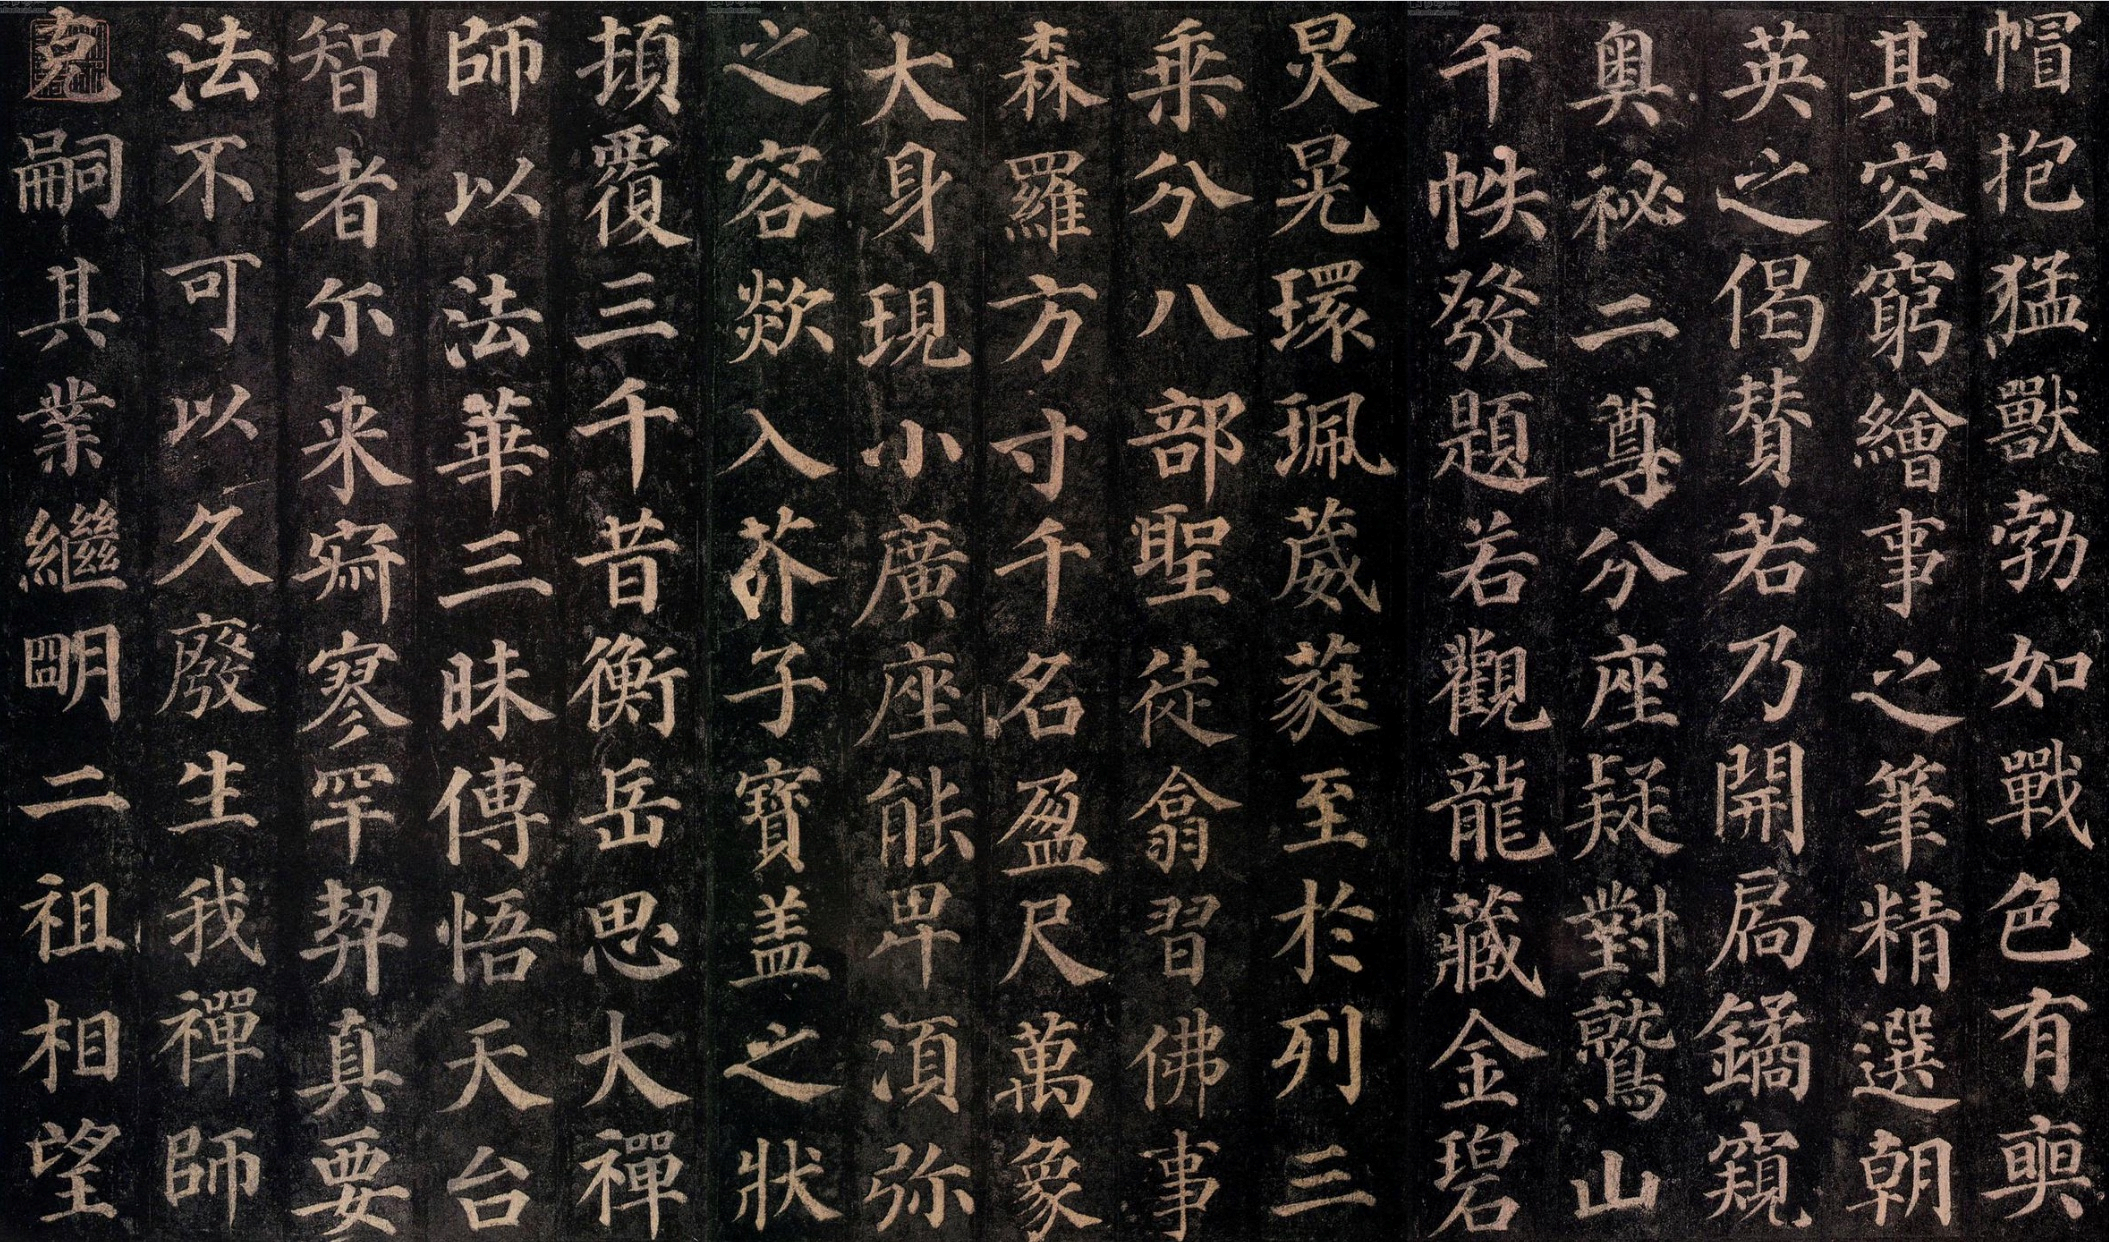 帽抱猛獸勃如戰色有奭
其容窮繪事之筆精選朝
英之偈贊若乃開扃鐍窺
奧祕二尊分座疑對鷲山
千帙發題若觀龍藏金碧
炅晃環珮葳蕤至於列三
乘分八部聖徒翕習佛事
森羅方寸千名盈尺萬象
大身現小廣座能卑湏弥
之容欻入芥子寶盖之狀
頓覆三千昔衡岳思大禪
師以法華三昧傳悟天台
智者尔来寂寥罕契真要
法不可以久廢生我禪師
克嗣其業繼明二祖相望